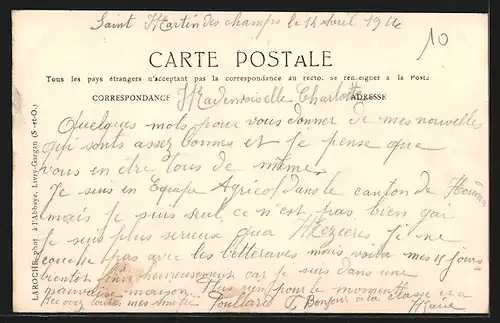 Saint Martin des champs le 14 Avril 19
10
CARTE POSTALE
Tous les pays étrangers n'acceptant pas la correspondance au recto, se renseigner à la Poste
CORRESPONDANCE
ADRESSE
Mademoiselle Charlotte
Quelques mots pour vous donner de mes nouvelles
qui sont assez bonnes et je pense que
vous en etre tous de même.
Je suis en Equipe Agricol dans le canton de
mais je suis seul ce n'est pas bien gai
je suis plus serieux qua Mezieres je ne
couche pas avec les betteraves mais voila mes 15 jours
bientot finis heureusement car je suis dans une
mauvaise maison. Plus rien pour le moment
Recevez toutes mes amitié Poullard Bonjour a la classe et a
Marie
LAROCHE, phot. à l'Abbaye, Livry-Gargan (S.-et-O.)